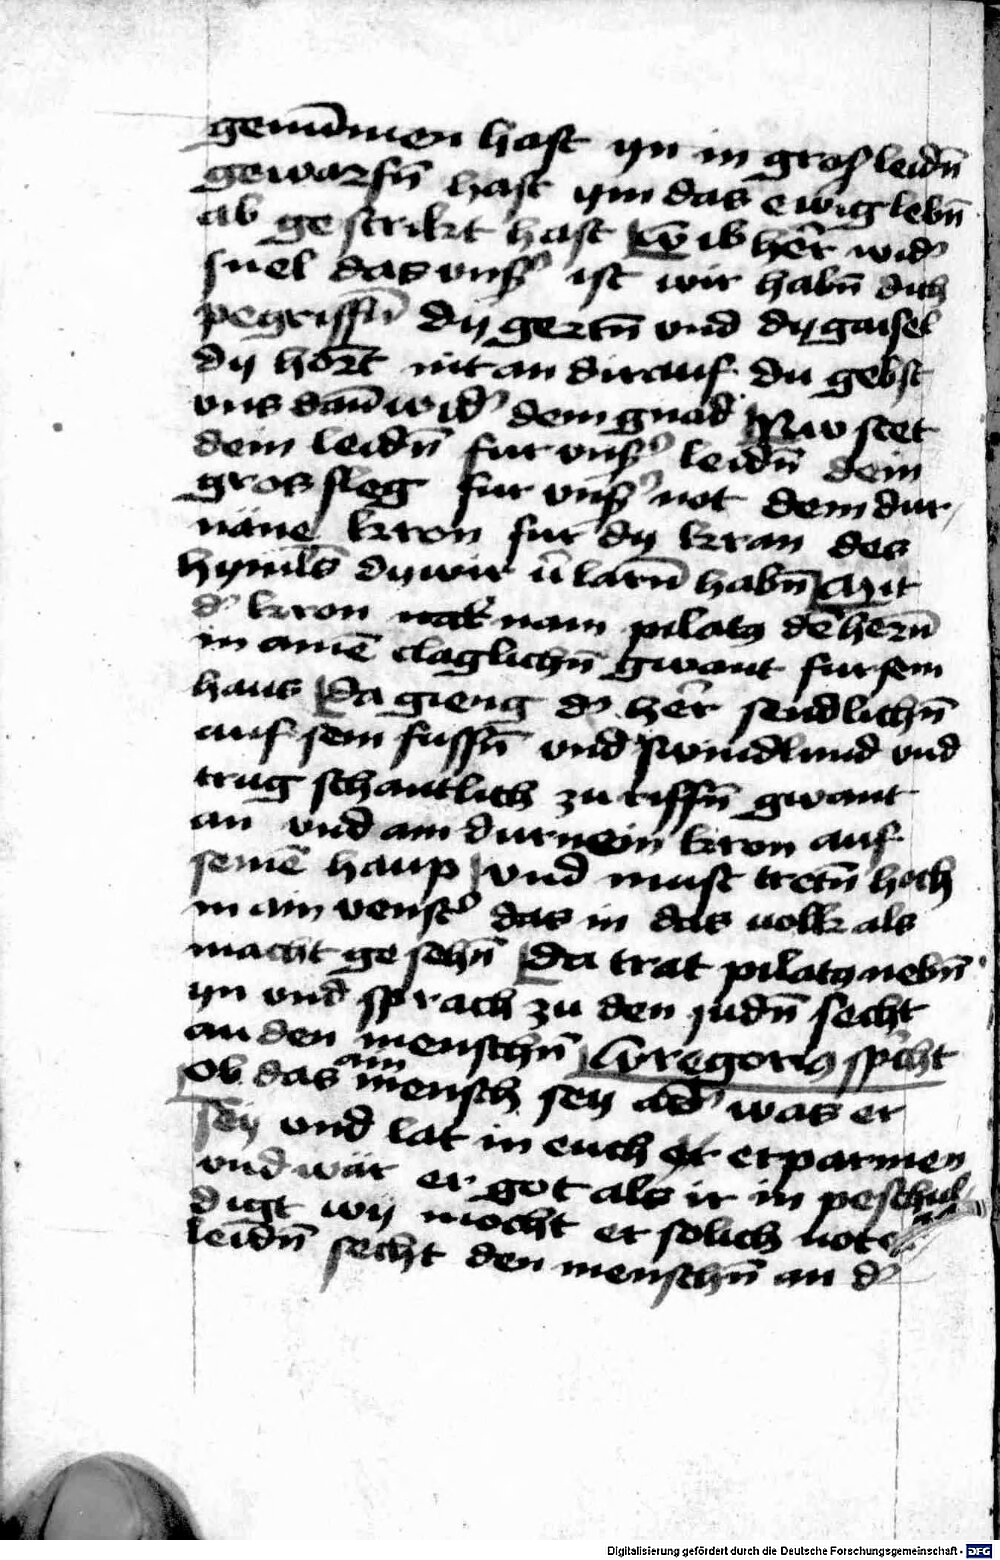 genūmen hast yn in gros leidn̄
geworfn̄ hast ym das ewig lebn̄
ab gestrikt hast Gib hēr wid̾
snel das vnß̾ ist wir habn̄ dich
pegriffn̄ dy gertn̄ vnd dy gaisel
dy hort nit an dirauf du gebst
vns dan̄ wid̾ dein gnad Nw stet
dein leidn̄ fur vnß̾ leidn̄ dein
gros sleg fur vnß̾ not dein dur
näne kron fur dy kran des
hymls̄ dy wir v̄larn̄ habn̄ Mit
d̾ kron nam pilatꝰ dē hern̄
in ainē claglichn̄ gwant fur sein
haus Da gieng d̾ hēr sendlichn̄
auf sein fussn̄ vnd swindlund vnd
trug schantlich zu rissn̄ gwant
an vnd ain durnein kron auf
seinē haup vnd must tretn̄ hoch
in ain venst̾ das in das uolk als
macht gesehn̄ Da trat pilatꝰ nebn̄
yn vnd sprach zu den judn̄ secht
an den menschn̄ Gregoriꝰ sp̄cht
Ob das ain mensch sey ad̾ was er
sey vnd lat in euch erparmen
vnd wär er got als ir in peschul
digt wy mocht er solich not
leidn̄ secht den menschn̄ an d̾
Digitalisierung gefördert durch die Deutsche Forschungsgemeinschaft - DFG